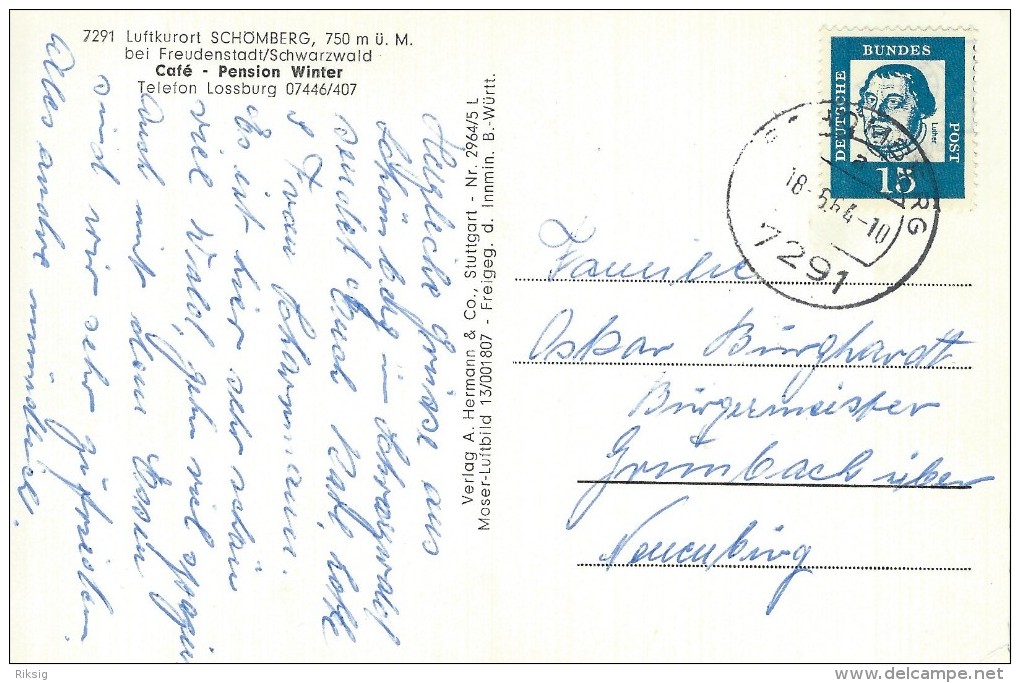 7291 Luftkurort SCHÖMBERG, 750 m ü. M.
bei Freudenstadt/Schwarzwald
Café - Pension Winter
Telefon Lossburg 07446/407
Herzliche Grüsse aus
Schömberg im Schwarzwald
sendet Euch Karl
u. Frau
Es ist hier sehr schön
viel Wald, gehn viel
Auch mit dem Essen
sind wir sehr zufrieden
Alles andere mündlich.
Verlag A. Hermann & Co., Stuttgart - Nr. 2964/5 L
Moser-Luftbild 13/001807 - Freigeg. d. Innmin. B.-Württ.
DEUTSCHE
BUNDES
POST
Luther
15
SCHÖMBERG
a
18-5.64-10
7291
Familie
Oskar Burghardt
Bürgermeister
Grunbach über
Neuenbürg
Riksig
delcampe.net